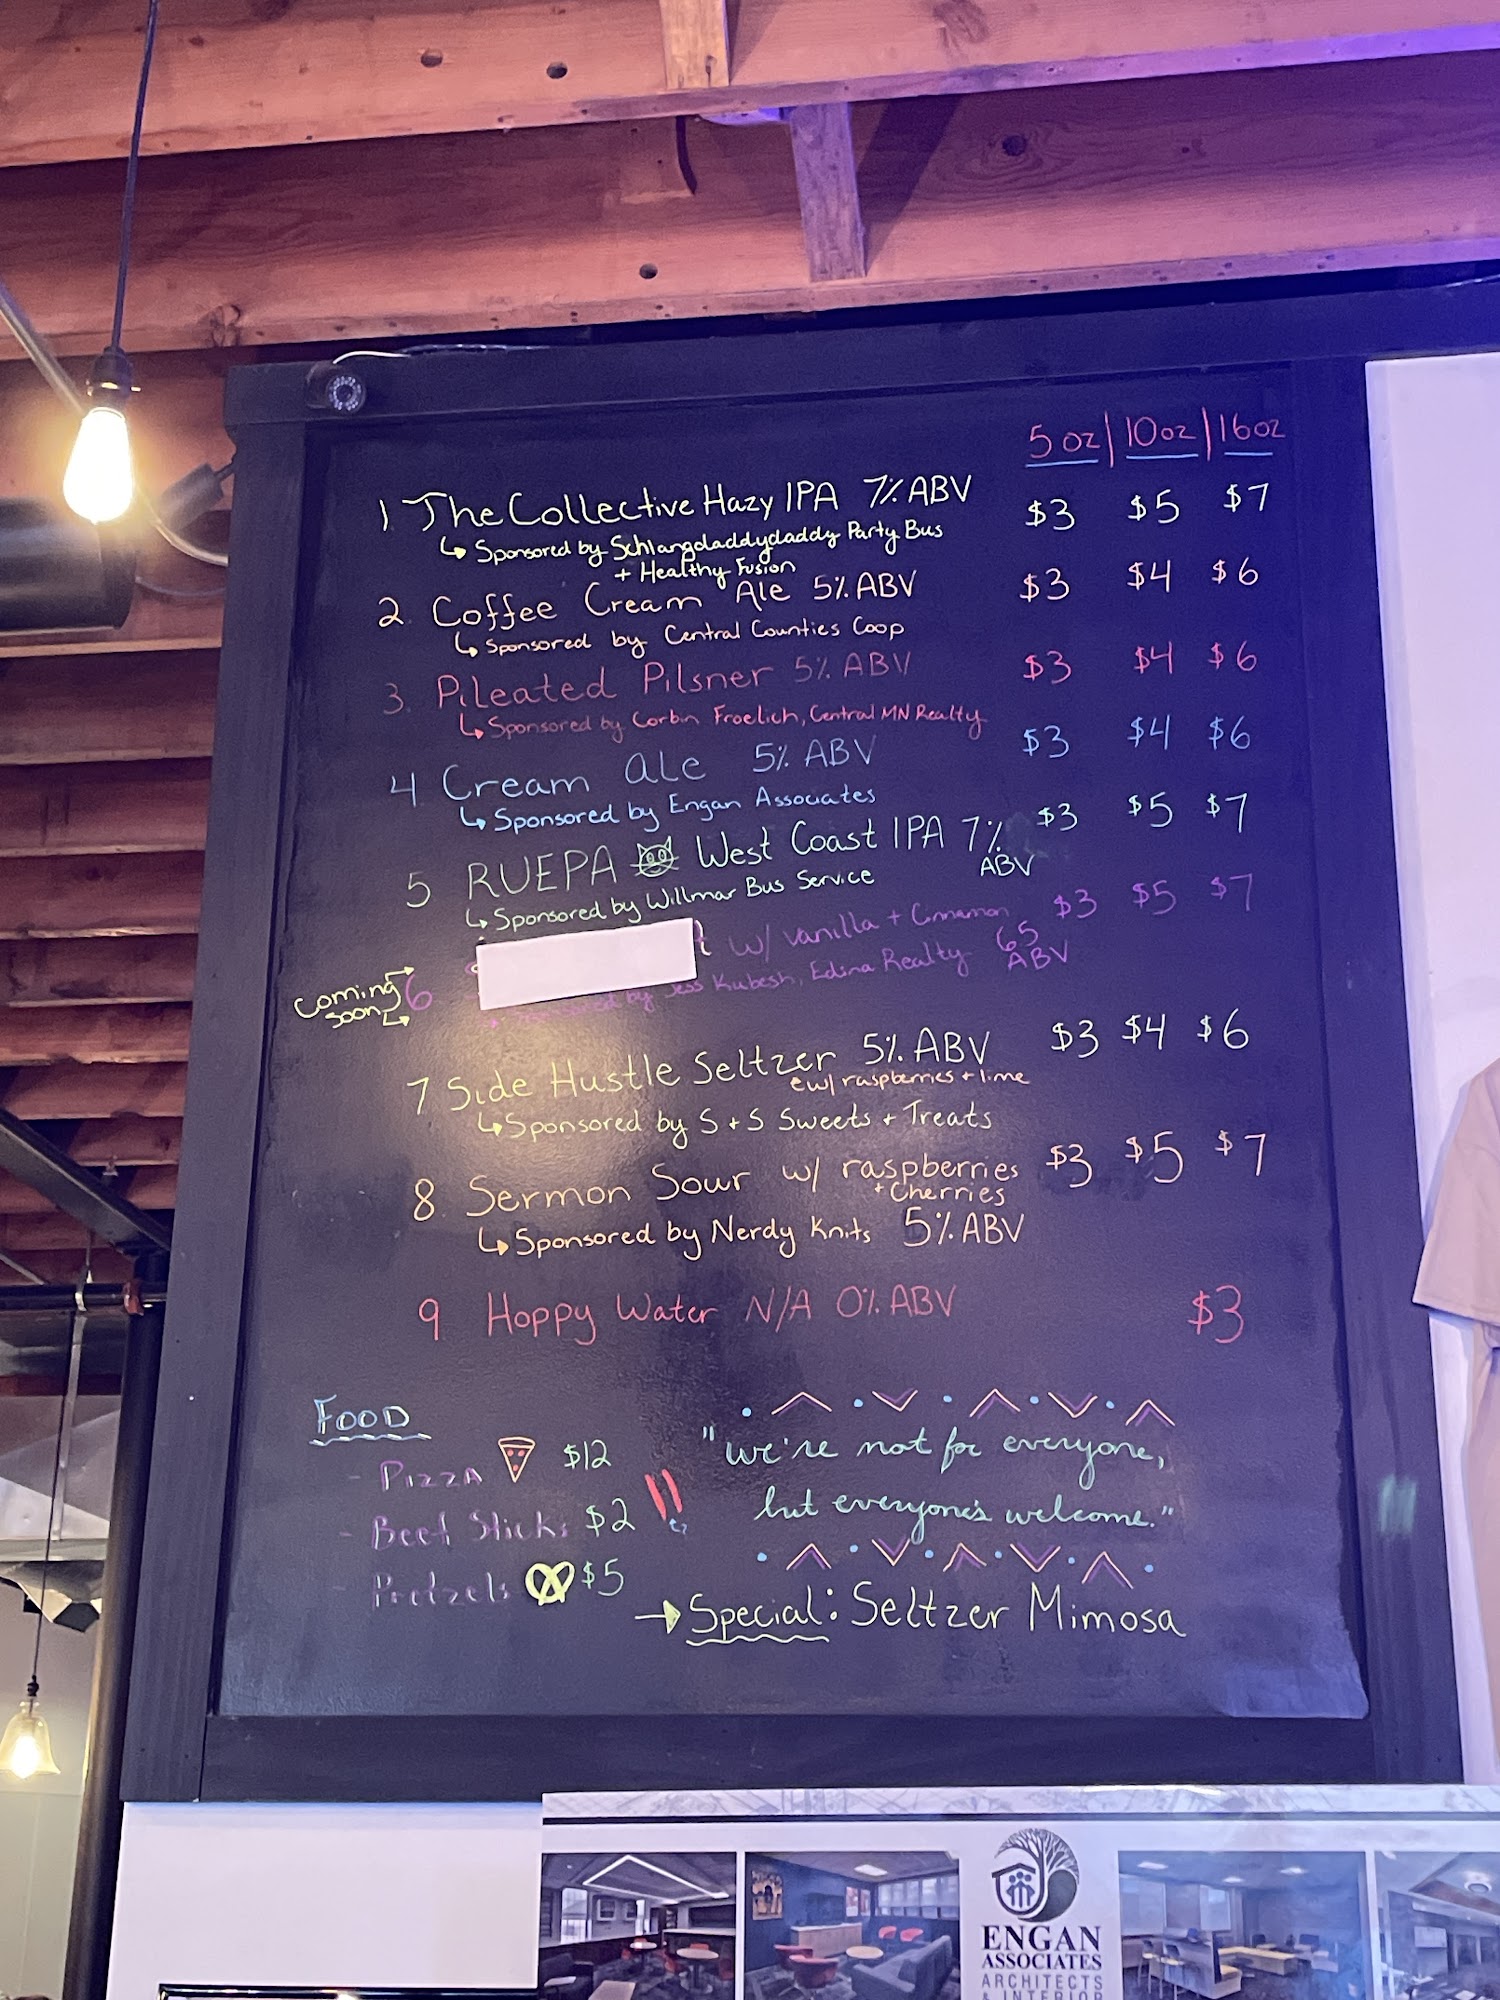 5 oz | 10oz | 16oz
1. The Collective Hazy IPA 7% ABV $3 $5 $7
↳ Sponsored by Schlangdaddydaddy Party Bus
+ Healthy Fusion
2. Coffee Cream Ale 5% ABV $3 $4 $6
↳ Sponsored by Central Counties Coop
3. Pileated Pilsner 5% ABV $3 $4 $6
↳ Sponsored by Corbin Froelich, Central MN Realty
4. Cream ale 5% ABV $3 $4 $6
↳ Sponsored by Engan Associates
5 RUEPA West Coast IPA 7% ABV $3 $5 $7
↳ Sponsored by Willmar Bus Service
Coming soon
6 w/ vanilla + Cinnamon $3 $5 $7
Sponsored by Jess Kubesh, Edina Realty ABV
7 Side Hustle Seltzer 5% ABV $3 $4 $6
w/ raspberries + lime
↳ Sponsored by S + S Sweets + Treats
8 Sermon Sour w/ raspberries $3 $5 $7
+ Cherries
↳ Sponsored by Nerdy Knits 5% ABV
9 Hoppy Water N/A 0% ABV $3
FOOD
- Pizza $12
- Beef Sticks $2
- Pretzels $5
"We're not for everyone,
but everyone's welcome."
→ Special: Seltzer Mimosa
ENGAN
ASSOCIATES
ARCHITECTS
& INTERIOR